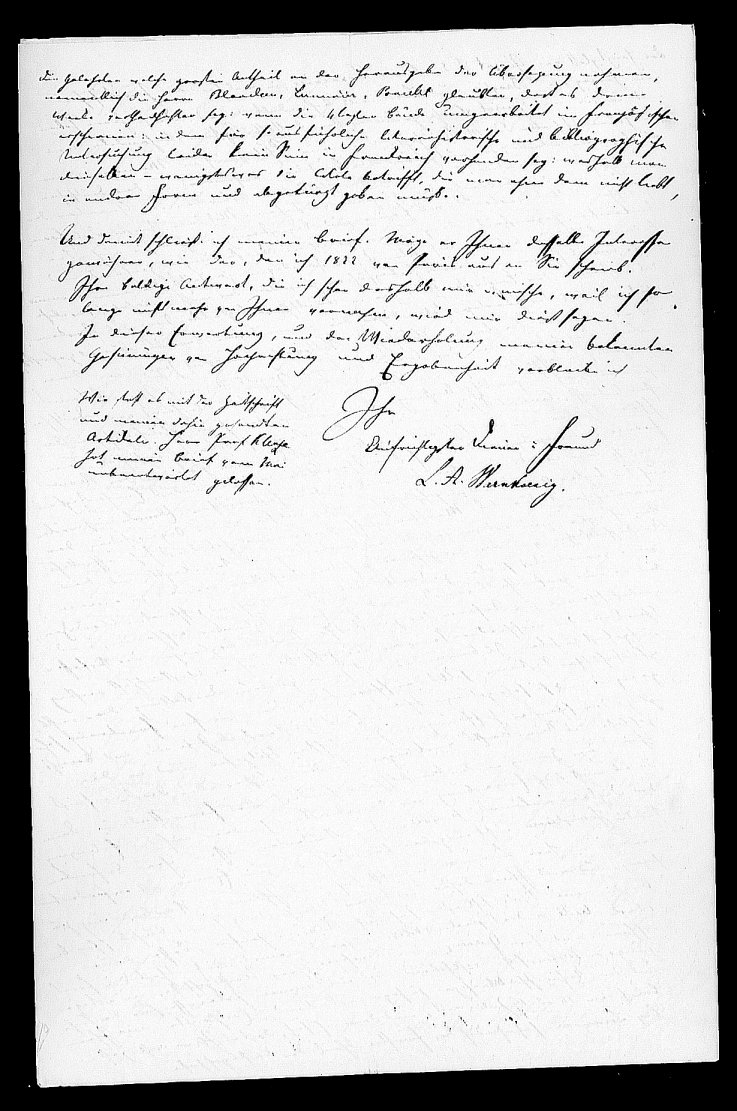 die Gelehrten welche großen Antheil an der Herausgabe der Übersetzung nehmen,
namentlich die Herrn Blondeau, glaubten, daß es dem
Werke vortheilhafter sey: wenn die Bände umgearbeitet im französischen
erschienen: indem für so ausführliche literarhistorische und bibliographische
Untersuchung leider kein Sinn in Frankreich vorhanden sey: weshalb man
dieselben – wenigstens was die betrifft, die man eben dem nicht liebt,
in andrer Form und abgekürzt geben müsse.
Und damit schließ ich meinen Brief. Möge er Ihnen dasselbe Interesse
gewähren, wie der, den ich 1822 von Paris aus an Sie schrieb.
Ihre baldige Antwort, die ich schon deshalb mir wünsche, weil ich so
lange nichts mehr von Ihnen vernahm, wird mir dieß sagen.
In dieser Erwartung, und der Wiederholung meiner bekannten
Gesinnungen von Hochachtung und Ergebenheit verbleibe ich
Ihr
aufrichtigster Freund
L. A. Warnkoenig.
Wie steht es mit der Zeitschrift
und meinen dahin gesandten
Artikeln. Herr Prof. Klenze
hat meinen Brief vom Mai
unbeantwortet gelassen.